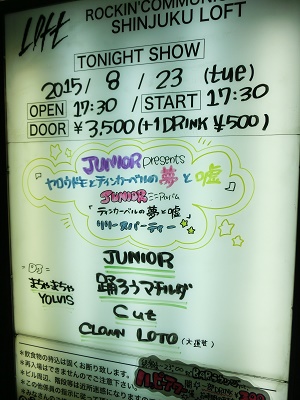 LOFT
ROCKIN'COMMUN
SHINJUKU LOFT
TONIGHT SHOW
2015/8/23 (tue)
OPEN 17:30 / START 17:30
DOOR ¥3,500 (+1DRINK ¥500)
JUNIOR presents
『ヤロウドモとティンカーベルの夢と嘘』
JUNIOR ミニアルバム
「ティンカーベルの夢と嘘」
リリースパーティー
JUNIOR
踊ろうマチルダ
Cut
CLOWN LOTO (大道芸)
-DJ-
まちゃまちゃ
YOUNS
*飲食物の持込は固くお断り致します。
*再入場はできませんのでご注意下さい!
*ビル周辺、階段等は近所迷惑になりますので